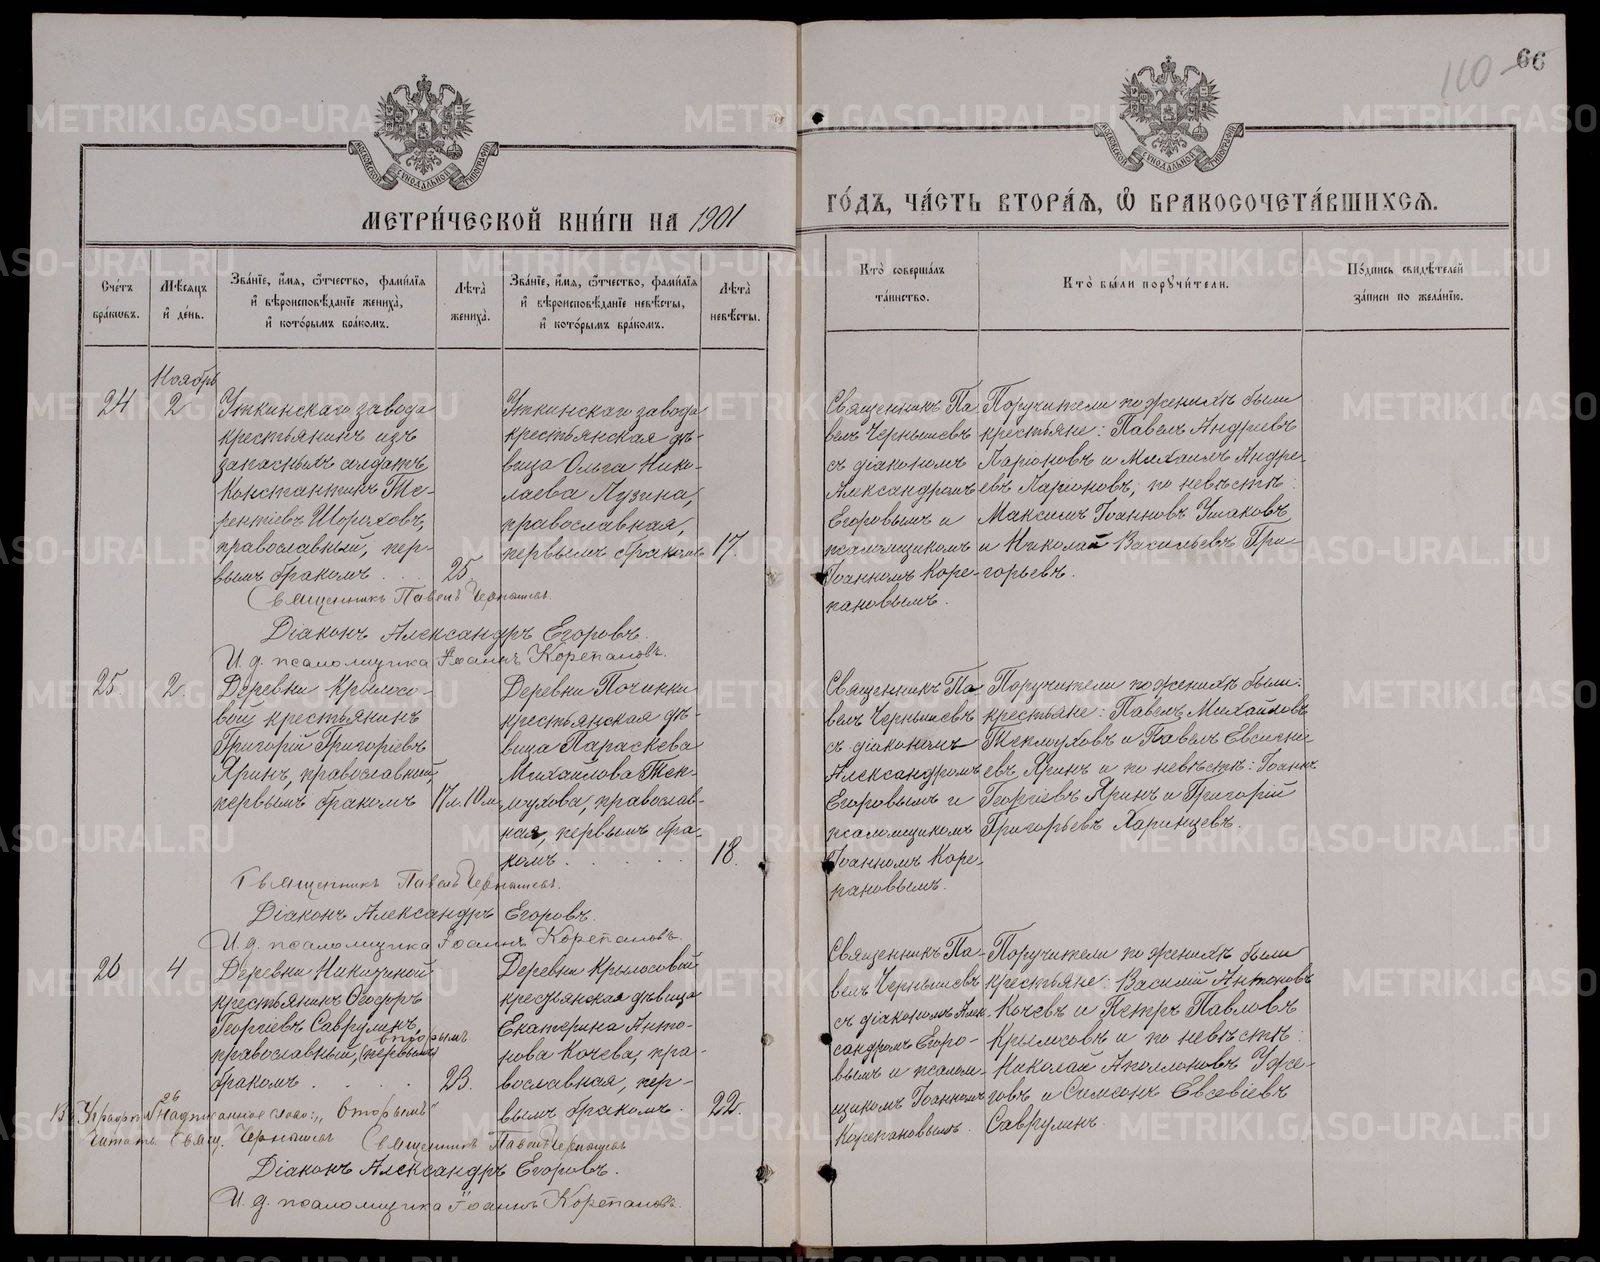 110
66
МОСКОВСКОЙ СѴНОДАЛЬНОЙ ТИПОГРАФІИ
МЕТРИ́ЧЕСКОЙ КНИ́ГИ НА 1901
ГО́ДЪ, ЧА́СТЬ ВТОРА́Ѧ, Ѽ БРАКОСОЧЕТА́ВШИХСѦ.
Сче́тъ бра́кѡвъ.
Мѣ́сѧцъ и҆ де́нь.
Зва́нїе, и҆́мѧ, ѻ҆́тчество, фами́лїѧ
и҆ вѣроисповѣ́данїе жениха̀,
и҆ кото́рымъ бра́комъ.
Лѣта̀ жениха̀.
Зва́нїе, и҆́мѧ, ѻ҆́тчество, фами́лїѧ
и҆ вѣроисповѣ́данїе невѣ́сты,
и҆ кото́рымъ бра́комъ.
Лѣта̀ невѣ́сты.
Кто̀ соверша́лъ
та́инство.
Кто̀ бы́ли порꙋчи́тели.
По́дпись свидѣ́телей
за́писи по жела́нїю.
Ноябрь
24
2
Уткинскаго завода
крестьянинъ изъ
запасныхъ солдатъ
Константинъ Те-
рентіевъ Шориховъ,
православный, пер-
вымъ бракомъ . . .
25.
Уткинскаго завода
крестьянская дѣ-
вица Ольга Нико-
лаева Лузина,
православная,
первымъ бракомъ
17.
Священникъ Па-
велъ Чернышевъ
съ діакономъ
Александромъ
Егоровымъ и
псаломщикомъ
Іоанномъ Коре-
пановымъ.
Поручители по женихѣ были
крестьяне: Павелъ Андреевъ
Ларіоновъ и Михаилъ Андре-
евъ Ларіоновъ; по невѣстѣ:
Максимъ Іоанновъ Ушаковъ
и Николай Васильевъ Гри-
горьевъ.
Священникъ Павелъ Чернышевъ.
Діаконъ Александръ Егоровъ.
И. д. псаломщика Іоаннъ Корепановъ.
25.
2.
Деревни Крылосо-
вой крестьянинъ
Григорій Григоріевъ
Яринъ, православный,
первымъ бракомъ
17 л. 10 м.
Деревни Починки
крестьянская дѣ-
вица Параскева
Михайлова Теп-
лоухова, православ-
ная, первымъ бра-
комъ . . . . . .
18.
Священникъ Па-
велъ Чернышевъ
съ діакономъ
Александромъ
Егоровымъ и
псаломщикомъ
Іоанномъ Коре-
пановымъ.
Поручители по женихѣ были:
крестьяне: Павелъ Михайловъ
Теплоуховъ и Павелъ Евсигни-
евъ Яринъ и по невѣстѣ: Іоаннъ
Георгіевъ Яринъ и Григорій
Григорьевъ Харинцевъ.
Священникъ Павелъ Чернышевъ.
Діаконъ Александръ Егоровъ.
И. д. псаломщика Іоаннъ Корепановъ.
26
4
Деревни Никитиной
крестьянинъ Ѳеодоръ
Георгіевъ Саврулинъ,
вторымъ
православный, (первымъ)
бракомъ . . . . .
23.
Деревни Крылосовой
крестьянская дѣвица
Екатерина Анто-
нова Кочева, пра-
вославная, пер-
вымъ бракомъ.
22.
Священникъ Па-
велъ Чернышевъ
съ діакономъ Алек-
сандромъ Егоро-
вымъ и псалом-
щикомъ Іоанномъ
Корепановымъ.
Поручители по женихѣ были
крестьяне: Василій Антоновъ
Кочевъ и Петръ Павловъ
Крылосовъ и по невѣстѣ:
Николай Аполлоновъ Уже-
говъ и Симеонъ Евсевіевъ
Саврулинъ.
Въ графѣ № 26 Надписанное слово: „вторымъ“
читать. Свящ. Чернышевъ
Священникъ Павелъ Чернышевъ
Діаконъ Александръ Егоровъ.
И. д. псаломщика Іоаннъ Корепановъ.
METRIKI.GASO-URAL.RU